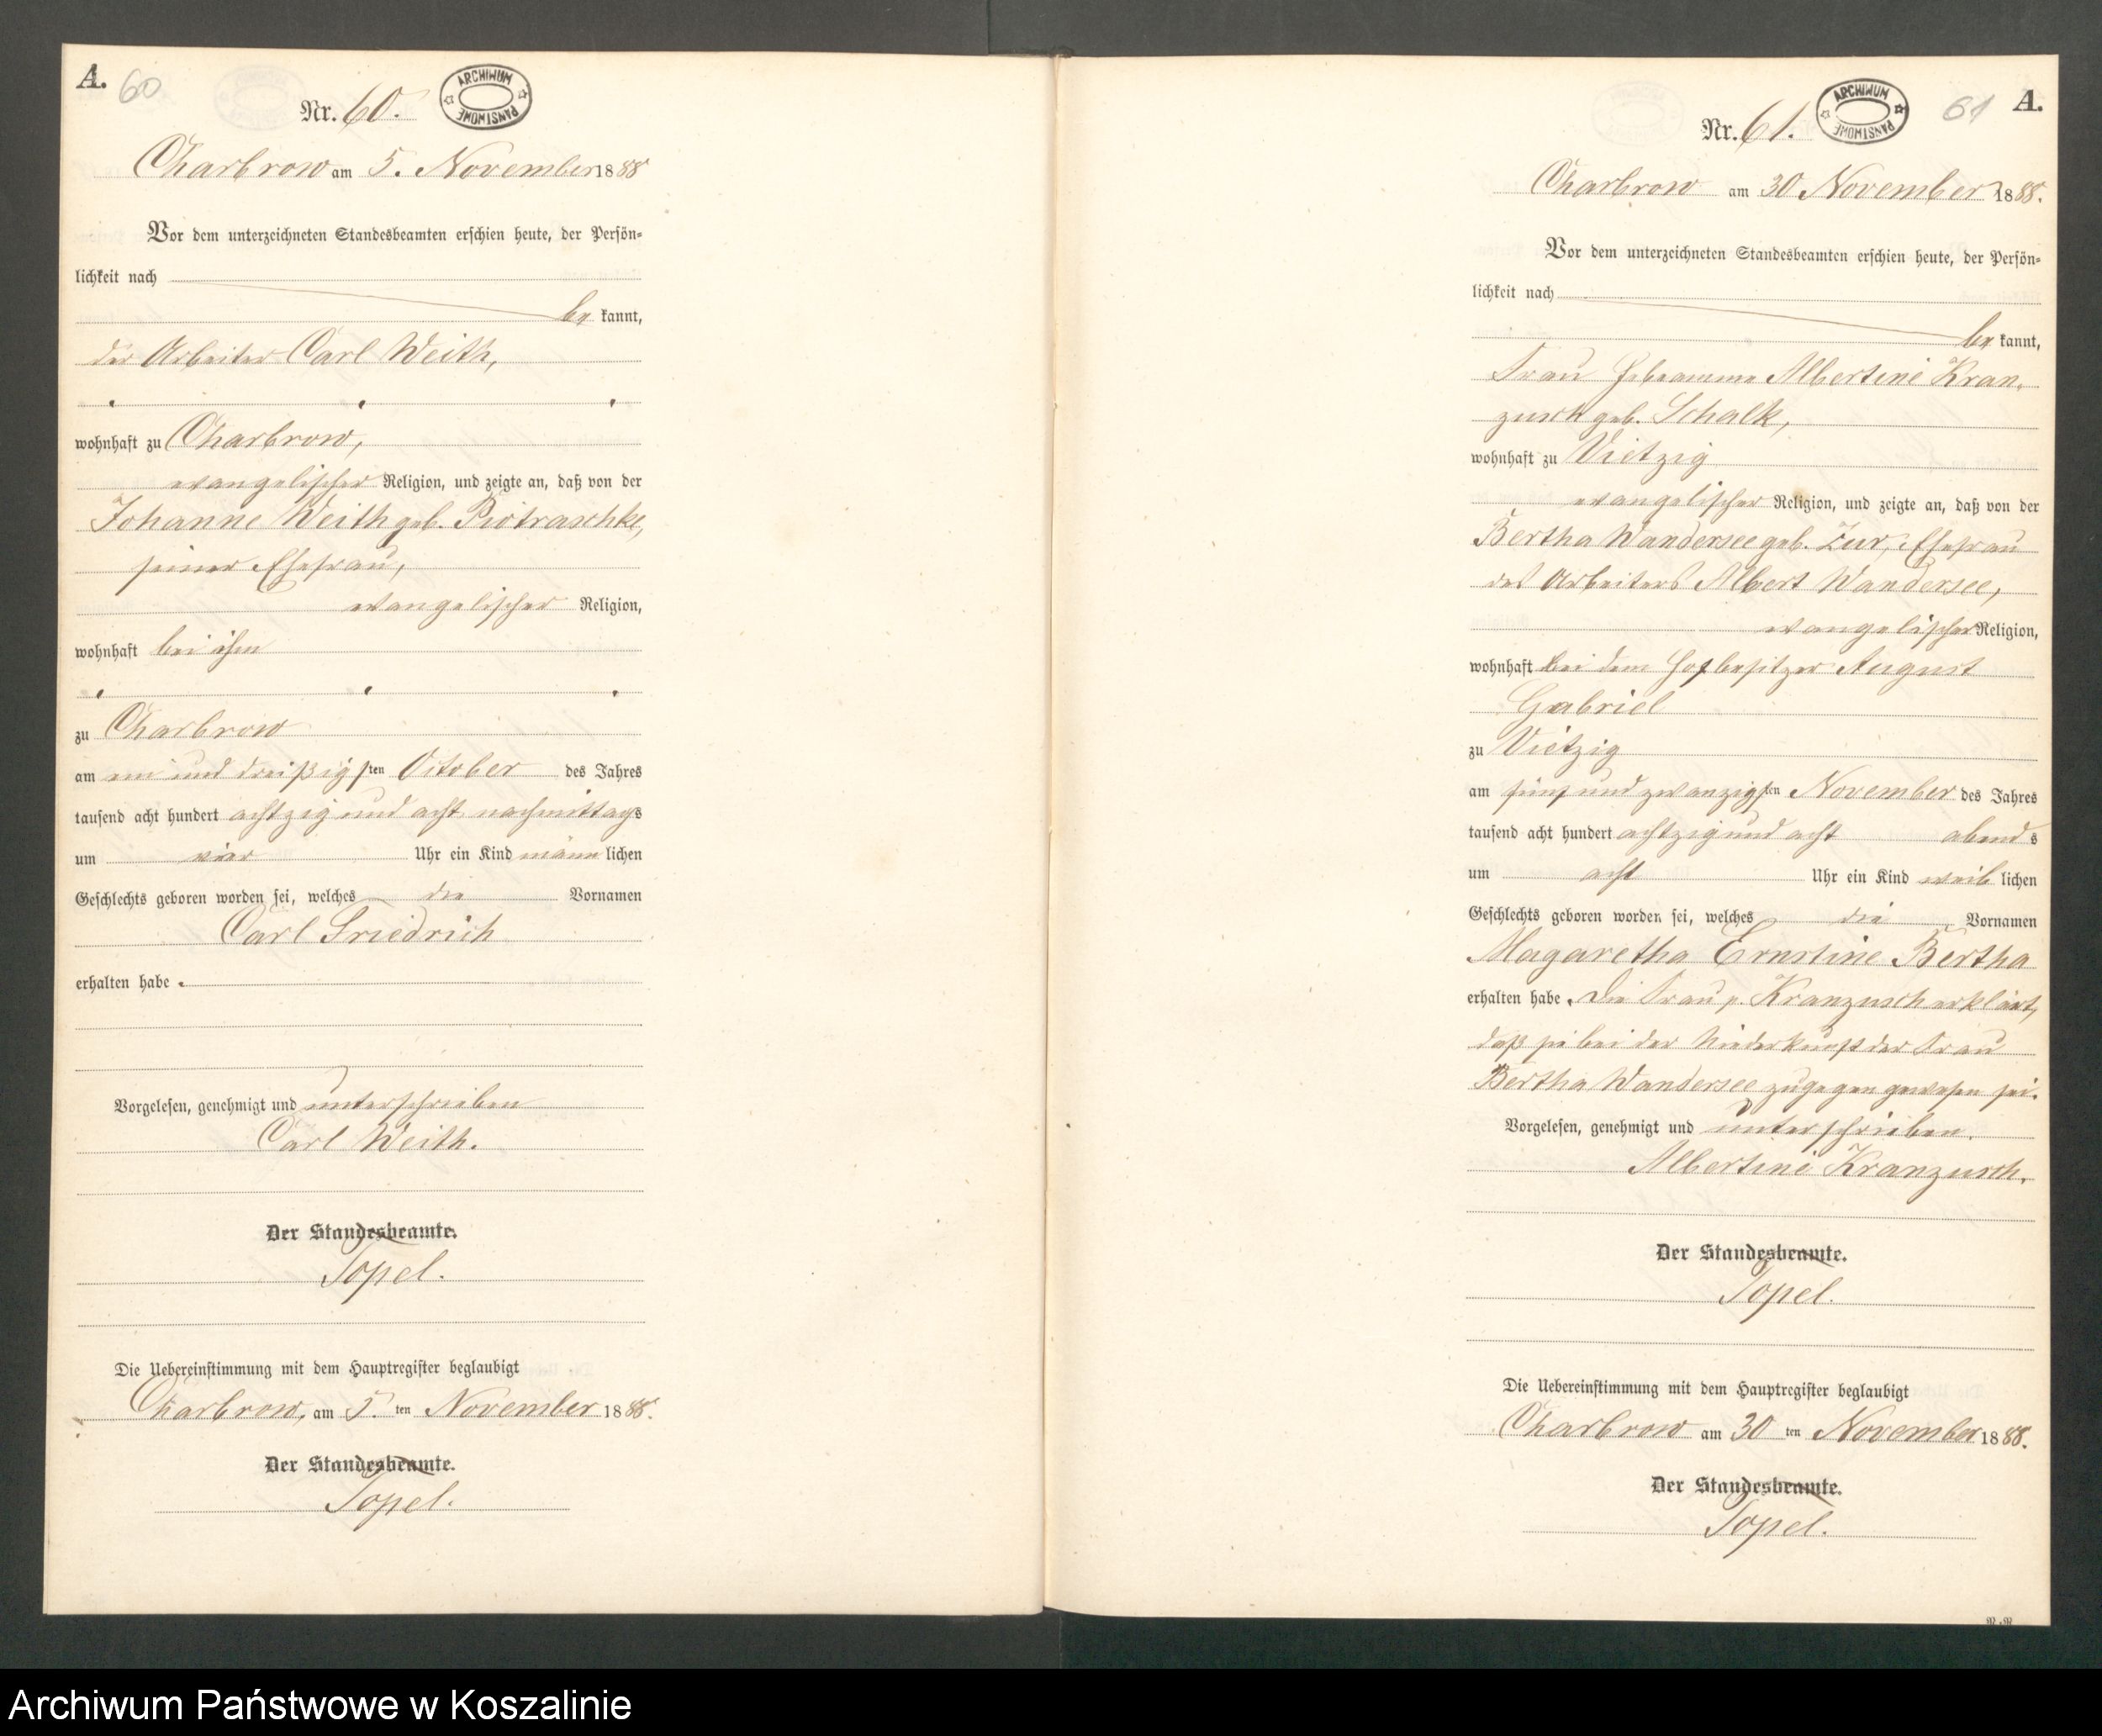 A. 60
Nr. 60.
ARCHIWUM PAŃSTWOWE
Charbrow am 5. November 1888
Vor dem unterzeichneten Standesbeamten erschien heute, der Persön=
lichkeit nach
be kannt,
der Arbeiter Carl Weith,
wohnhaft zu Charbrow,
evangelischer Religion, und zeigte an, daß von der
Johanne Weith geb. Piotraschke,
seiner Ehefrau,
evangelischer Religion,
wohnhaft bei ihm
zu Charbrow
am ein und dreißigsten October des Jahres
tausend acht hundert achtzig und acht nachmittags
um vier Uhr ein Kind männlichen
Geschlechts geboren worden sei, welches die Vornamen
Carl Friedrich
erhalten habe.
Vorgelesen, genehmigt und unterschrieben
Carl Weith.
Der Standesbeamte.
Topel.
Die Uebereinstimmung mit dem Hauptregister beglaubigt
Charbrow, am 5. ten November 1888.
Der Standesbeamte.
Topel.
61 A.
Nr. 61.
ARCHIWUM PAŃSTWOWE
Charbrow am 30 November 1888.
Vor dem unterzeichneten Standesbeamten erschien heute, der Persön=
lichkeit nach
be kannt,
Frau Hebeamme Albertine Kran-
zusch geb. Schalk,
wohnhaft zu Vietzig
evangelischer Religion, und zeigte an, daß von der
Bertha Wandersee geb. Zur, Ehefrau
des Arbeiters Albert Wandersee,
evangelischer Religion,
wohnhaft bei dem Hofbesitzer August
Gabriel
zu Vietzig
am fünf und zwanzigsten November des Jahres
tausend acht hundert achtzig und acht abends
um acht Uhr ein Kind weiblichen
Geschlechts geboren worden sei, welches die Vornamen
Magaretha Ernstine Bertha
erhalten habe. Die Frau p. Kranzusch erklärt,
daß sie bei der Niederkunft der Frau
Bertha Wandersee zugegen gewesen sei.
Vorgelesen, genehmigt und unterschrieben.
Albertine Kranzusch.
Der Standesbeamte.
Topel.
Die Uebereinstimmung mit dem Hauptregister beglaubigt
Charbrow am 30 ten November 1888.
Der Standesbeamte.
Topel.
Archiwum Państwowe w Koszalinie